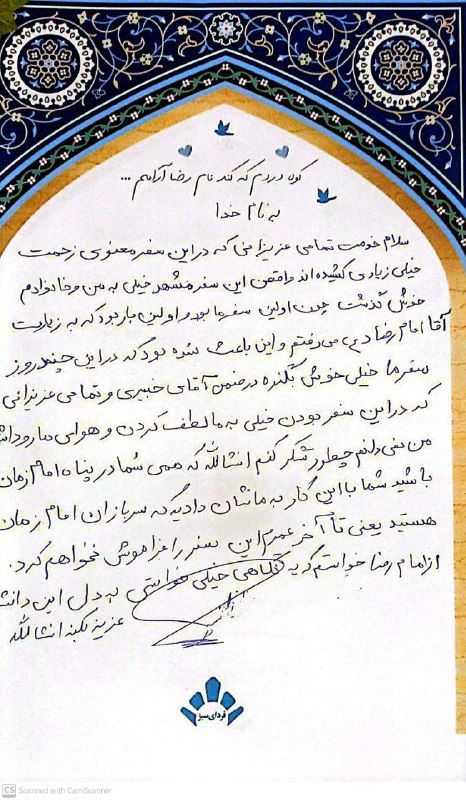 کوه دردم که کند نام رضا آرامم ...
به نام خدا
سلام خدمت تمامی عزیزانی که در این سفر معنوی زحمت
خیلی زیادی کشیده اند واقعن این سفر مشهد خیلی به من و خانوادم
خوش گذشت چون اولین سفرما بود و اولین بار بود که به زیارت
آقا امام رضا (ع) می رفتم و این باعث شده بود که در این چند روز
سفر ما خیلی خوش بگذره در ضمن آقای خبیری و تمامی عزیزانی
که در این سفر بودن خیلی به ما لطف کردن و هوای مارو داش
من نمی دانم چطور شکر کنم انشالله که همی شما در پناه امام زمان
باشید شما با این کار به ما نشان دادید که سربازان امام زمان
هستید یعنی تا آخر عمرم این سفر را فراموش نخواهم کرد.
از امام رضا خواستم که یه نگاهی خیلی به دل این دانش
عزیز بکند انشالله
فردای سبز
CS Scanned with CamScanner